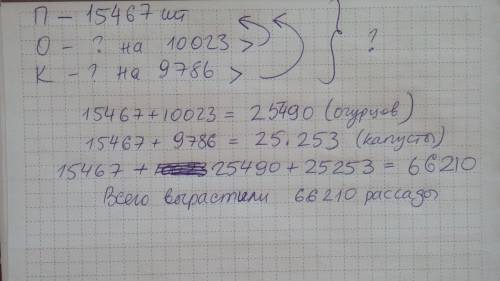 П – 15467 шт
О – ? на 10023 >
К – ? на 9786 >
?
15467 + 10023 = 25490 (огурцов)
15467 + 9786 = 25.253 (капусты)
15467 + 25490 + 25253 = 66210
Всего вырастили 66210 рассады